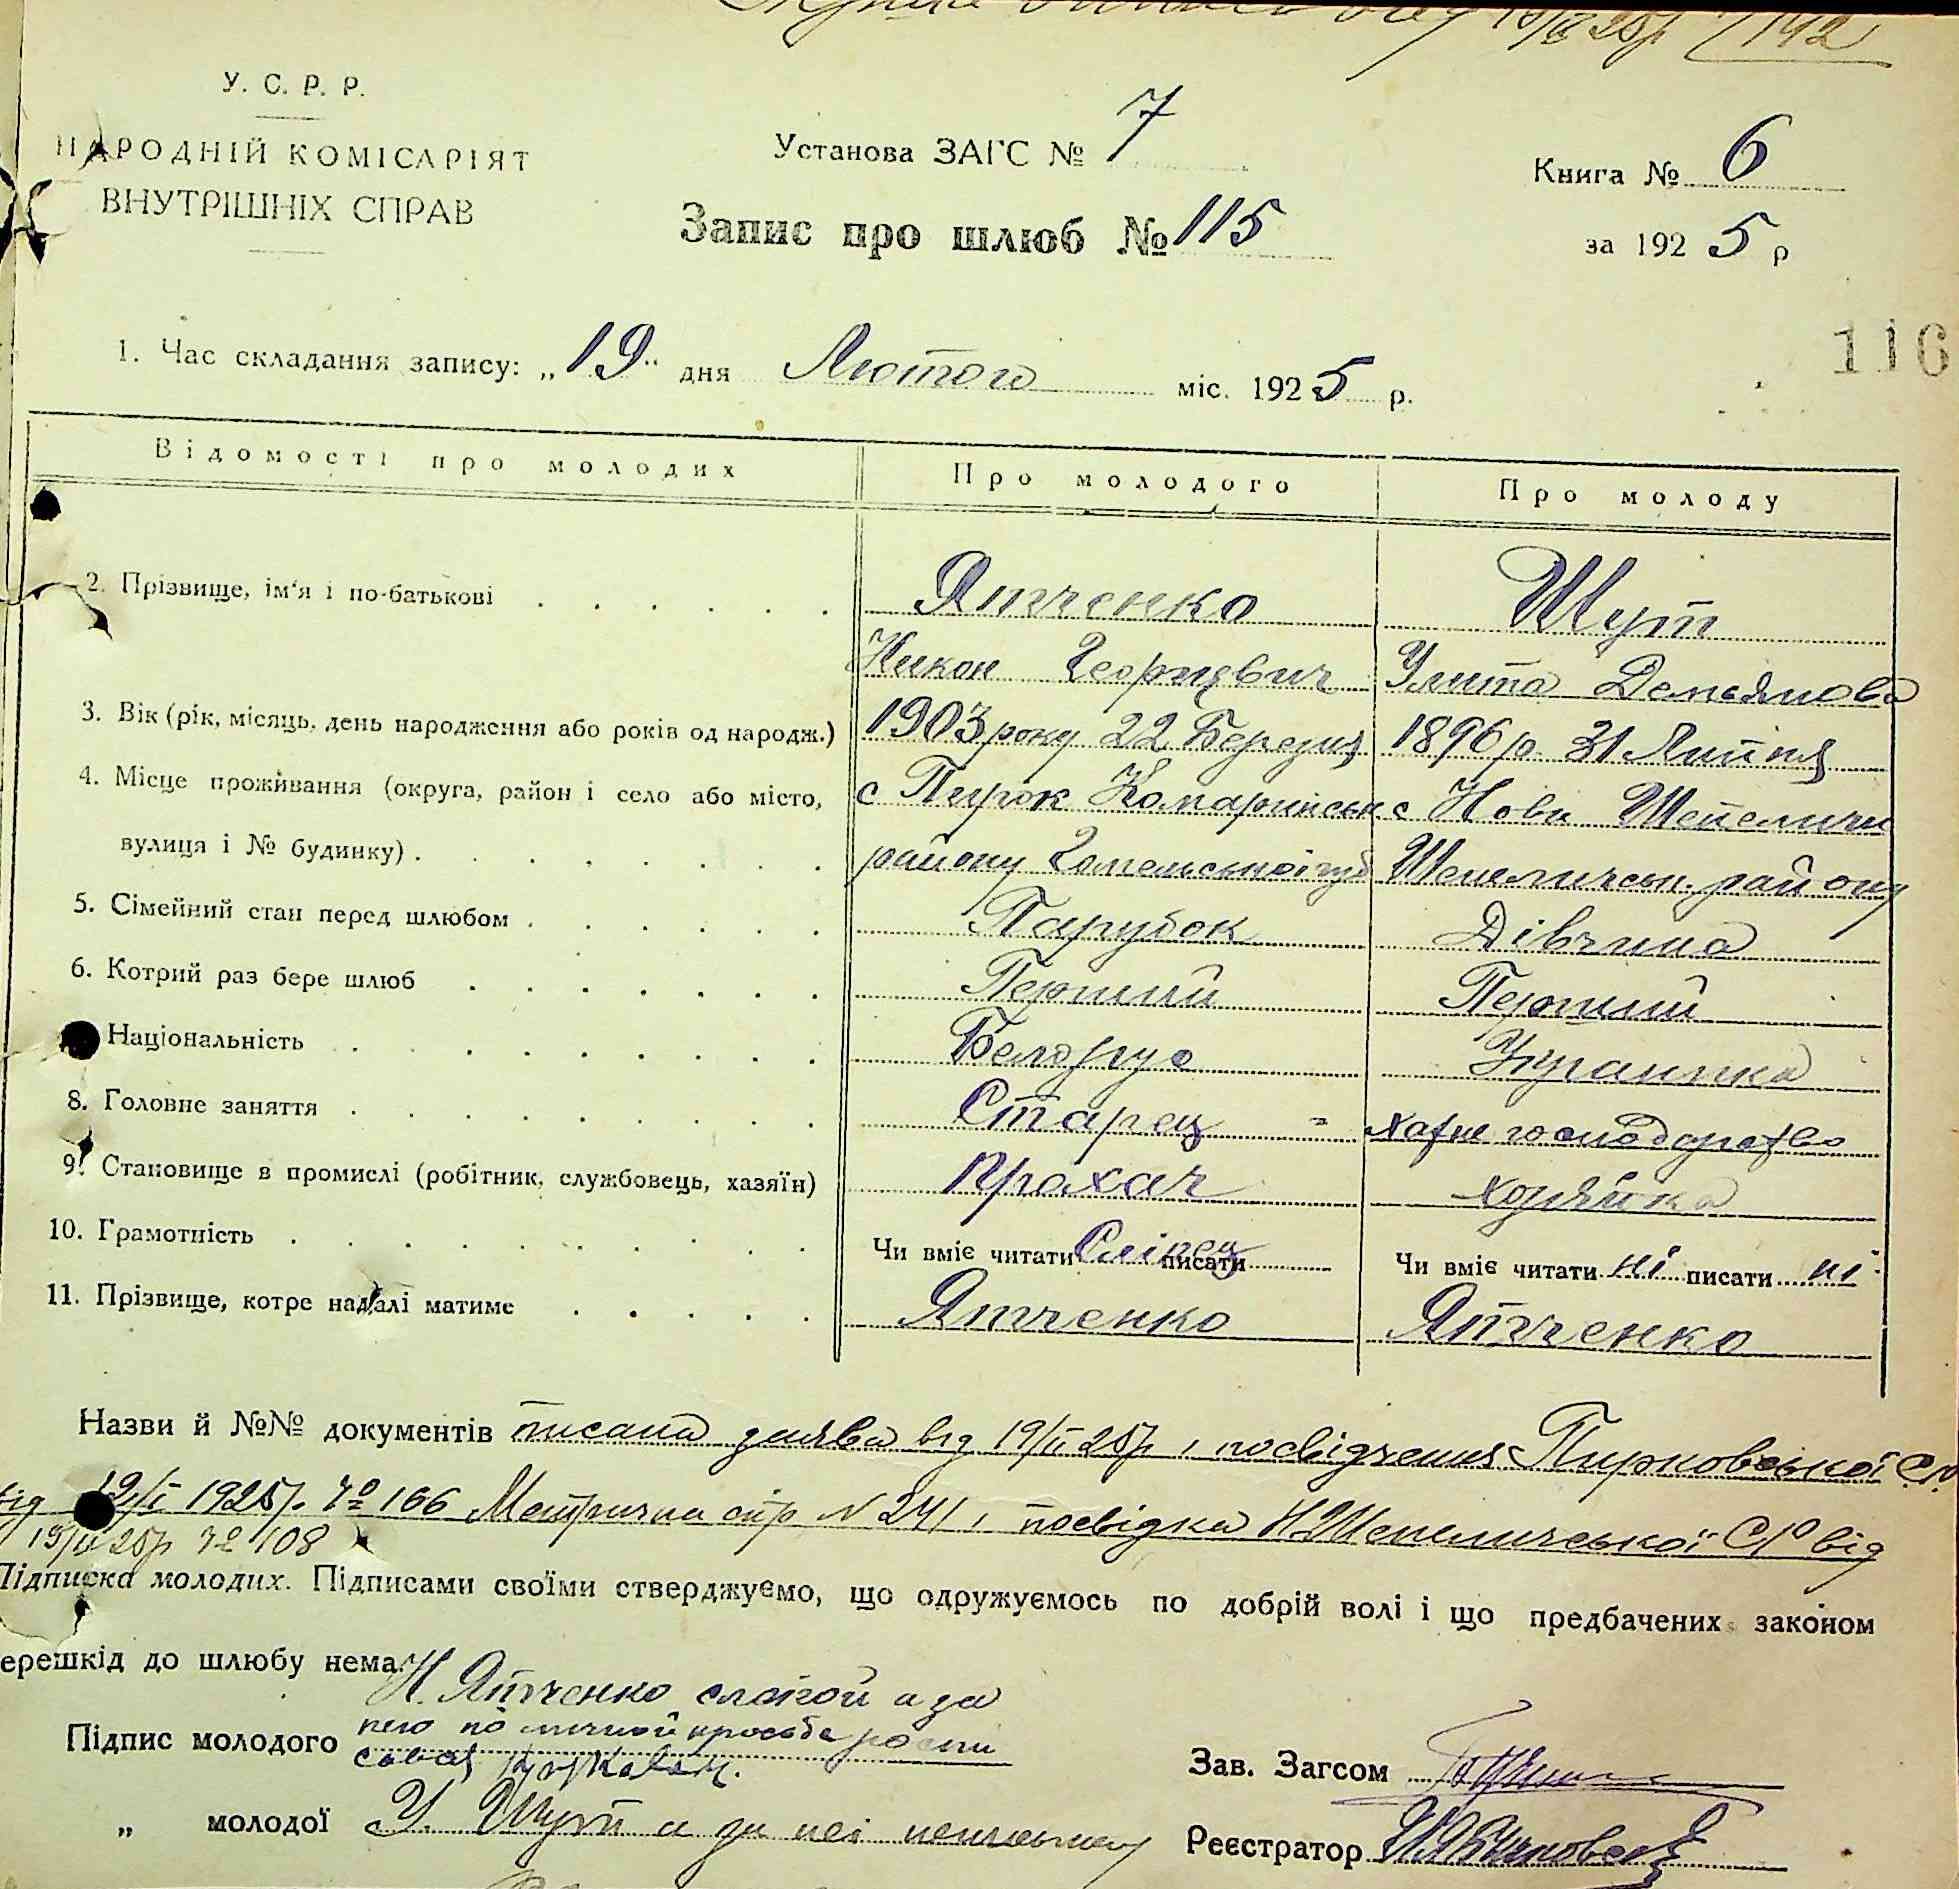 19/II 25р 142
У. С. Р. Р.
НАРОДНІЙ КОМІСАРІЯТ
ВНУТРІШНІХ СПРАВ
Установа ЗАГС № 7
Книга № 6
Запис про шлюб № 115
за 1925 р
116
1. Час складання запису: „19" дня Лютого міс. 1925 р.
Відомості про молодих Про молодого Про молоду
2. Прізвище, ім'я і по-батькові Ятченко Шут
Никон Георгіевич Улита Демьянова
3. Вік (рік, місяць, день народження або років од народж.) 1903 року 22 Березня 1896 р. 31 Липня
4. Місце проживання (округа, район і село або місто, с Пирок Комаринськ с Нови Шепеличи
вулиця і № будинку) району Гомельської губ Шепеличськ. району
5. Сімейний стан перед шлюбом Парубок Дівчина
6. Котрий раз бере шлюб Перший Перший
Національність Белорус Украинка
8. Головне заняття Старец - хатне господарство
9. Становище в промислі (робітник, службовець, хазяїн) прохач хозяйка
10. Грамотність Чи вміє читати Сліпец писати Чи вміє читати ні писати ні
11. Прізвище, котре надалі матиме Ятченко Ятченко
Назви й №№ документів писана заява від 19/II 25р, посвідчення Пирковської С/р.
від 12/I 1925р. № 166 Метрична стр N 241, посвідка Н.Шепеличської С/Р від
19/II 25р № 108
Підписка молодих. Підписами своїми стверджуємо, що одружуємось по добрій волі і що предбачених законом
ерешкід до шлюбу нема.
Н. Ятченко слепой а за
Підпис молодого него по личной просьбе роспи
сался
Зав. Загсом
„ молодої У. Шут а за неї неписьмену
Реєстратор